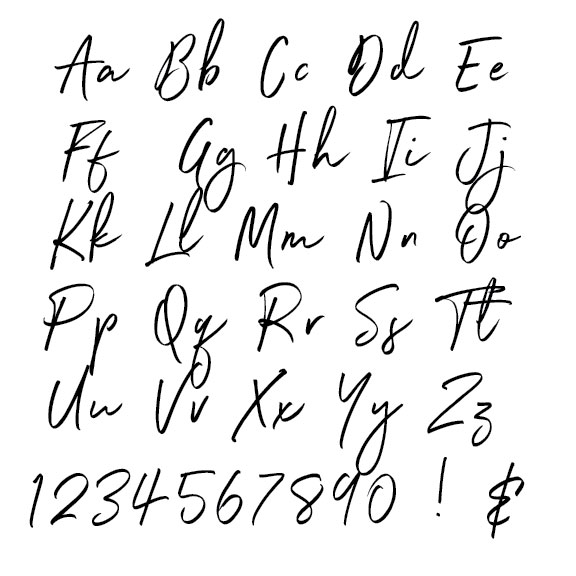 Aa Bb Cc Dd Ee
Ff Gg Hh Ii Jj
Kk Ll Mm Nn Oo
Pp Qq Rr Ss Tt
Uu Vv Xx Yy Zz
1234567890 ! $